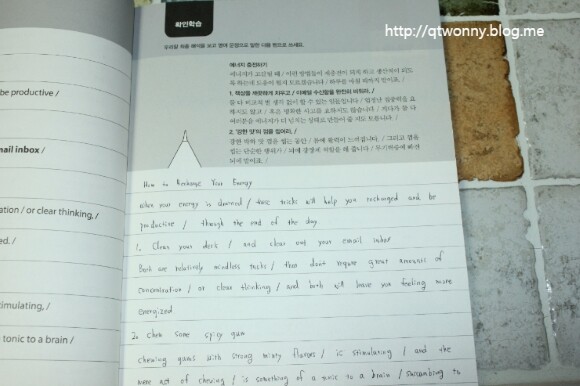 http://qtwonny.blog.me
확인학습
be productive /
mail inbox /
ation / or clear thinking, /
ed. /
timulating, /
tonic to a brain /
수성할 위를 해석을 보고 영어 문장으로 말한 다음 힘으로 쓰세요.
에너지 충전하기
에너지가 고갈될 때 / 이런 방법들이 재충전이 되게 하고 생산적이 되도
록 하는데 도움이 될지 모르겠습니다 / 하루를 마칠 때까지 말이죠. /
1. 책상을 깨끗하게 치우고 / 이메일 수신함을 한번씩 비워라. /
2. '강한 맛'의 껌을 씹어라. /
How to Recharge Your Energy
When your energy is drained / these tricks will help you recharged and be
productive / through the end of the day
1. Clean your desk / and clear out your email inbox
Both are relatively mindless tasks / they don't require great amounts of
concentration / or clear thinking / and both will leave you feeling more
energized
2. Chew some spicy gum
chewing gums with strong minty flavors / is stimulating / and the
mere act of chewing / is something of a tonic to a brain /